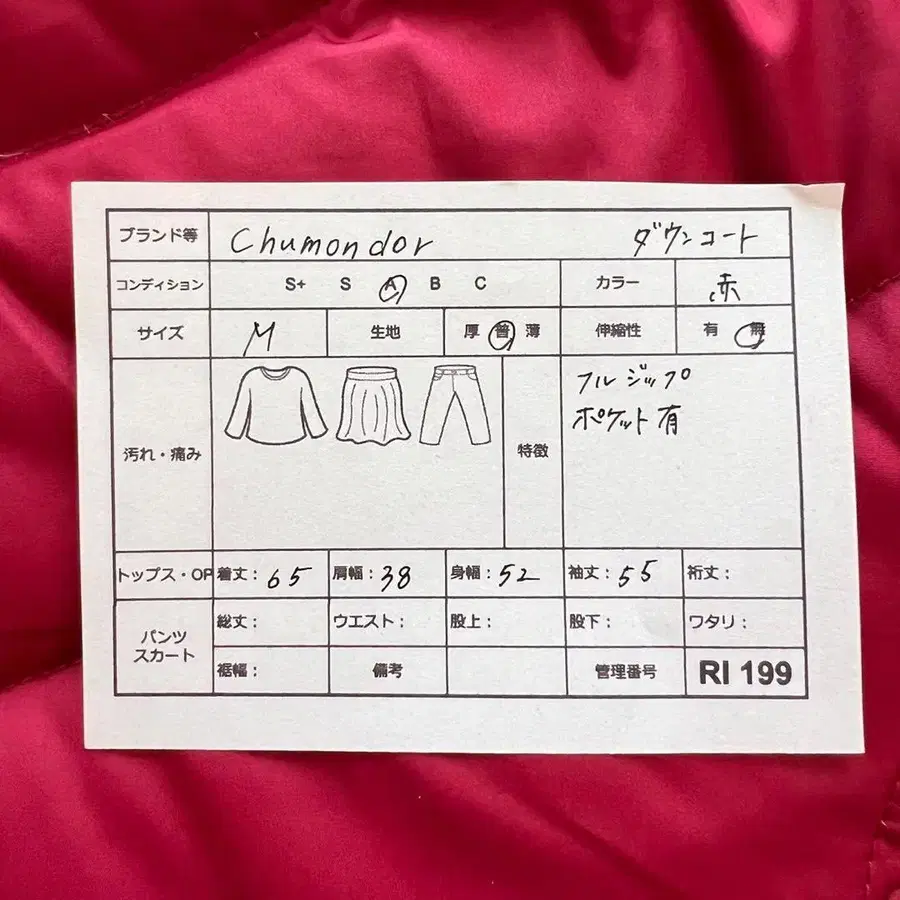 ブランド等 Chumondor ダウンコート
コンディション S+ S A B C カラー 赤
サイズ M 生地 厚 普 薄 伸縮性 有 無
汚れ・痛み 特徴 フルジップ
ポケット有
トップス・OP 着丈：65 肩幅：38 身幅：52 袖丈：55 裄丈：
パンツ
スカート
総丈： ウエスト： 股上： 股下： ワタリ：
裾幅： 備考 管理番号 RI 199